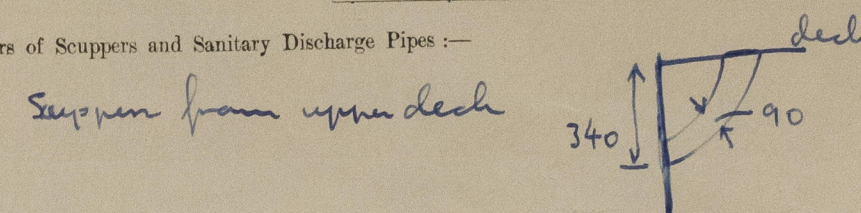 rs of Scuppers and Sanitary Discharge Pipes :—
deck
Scupper from upper deck
90
340